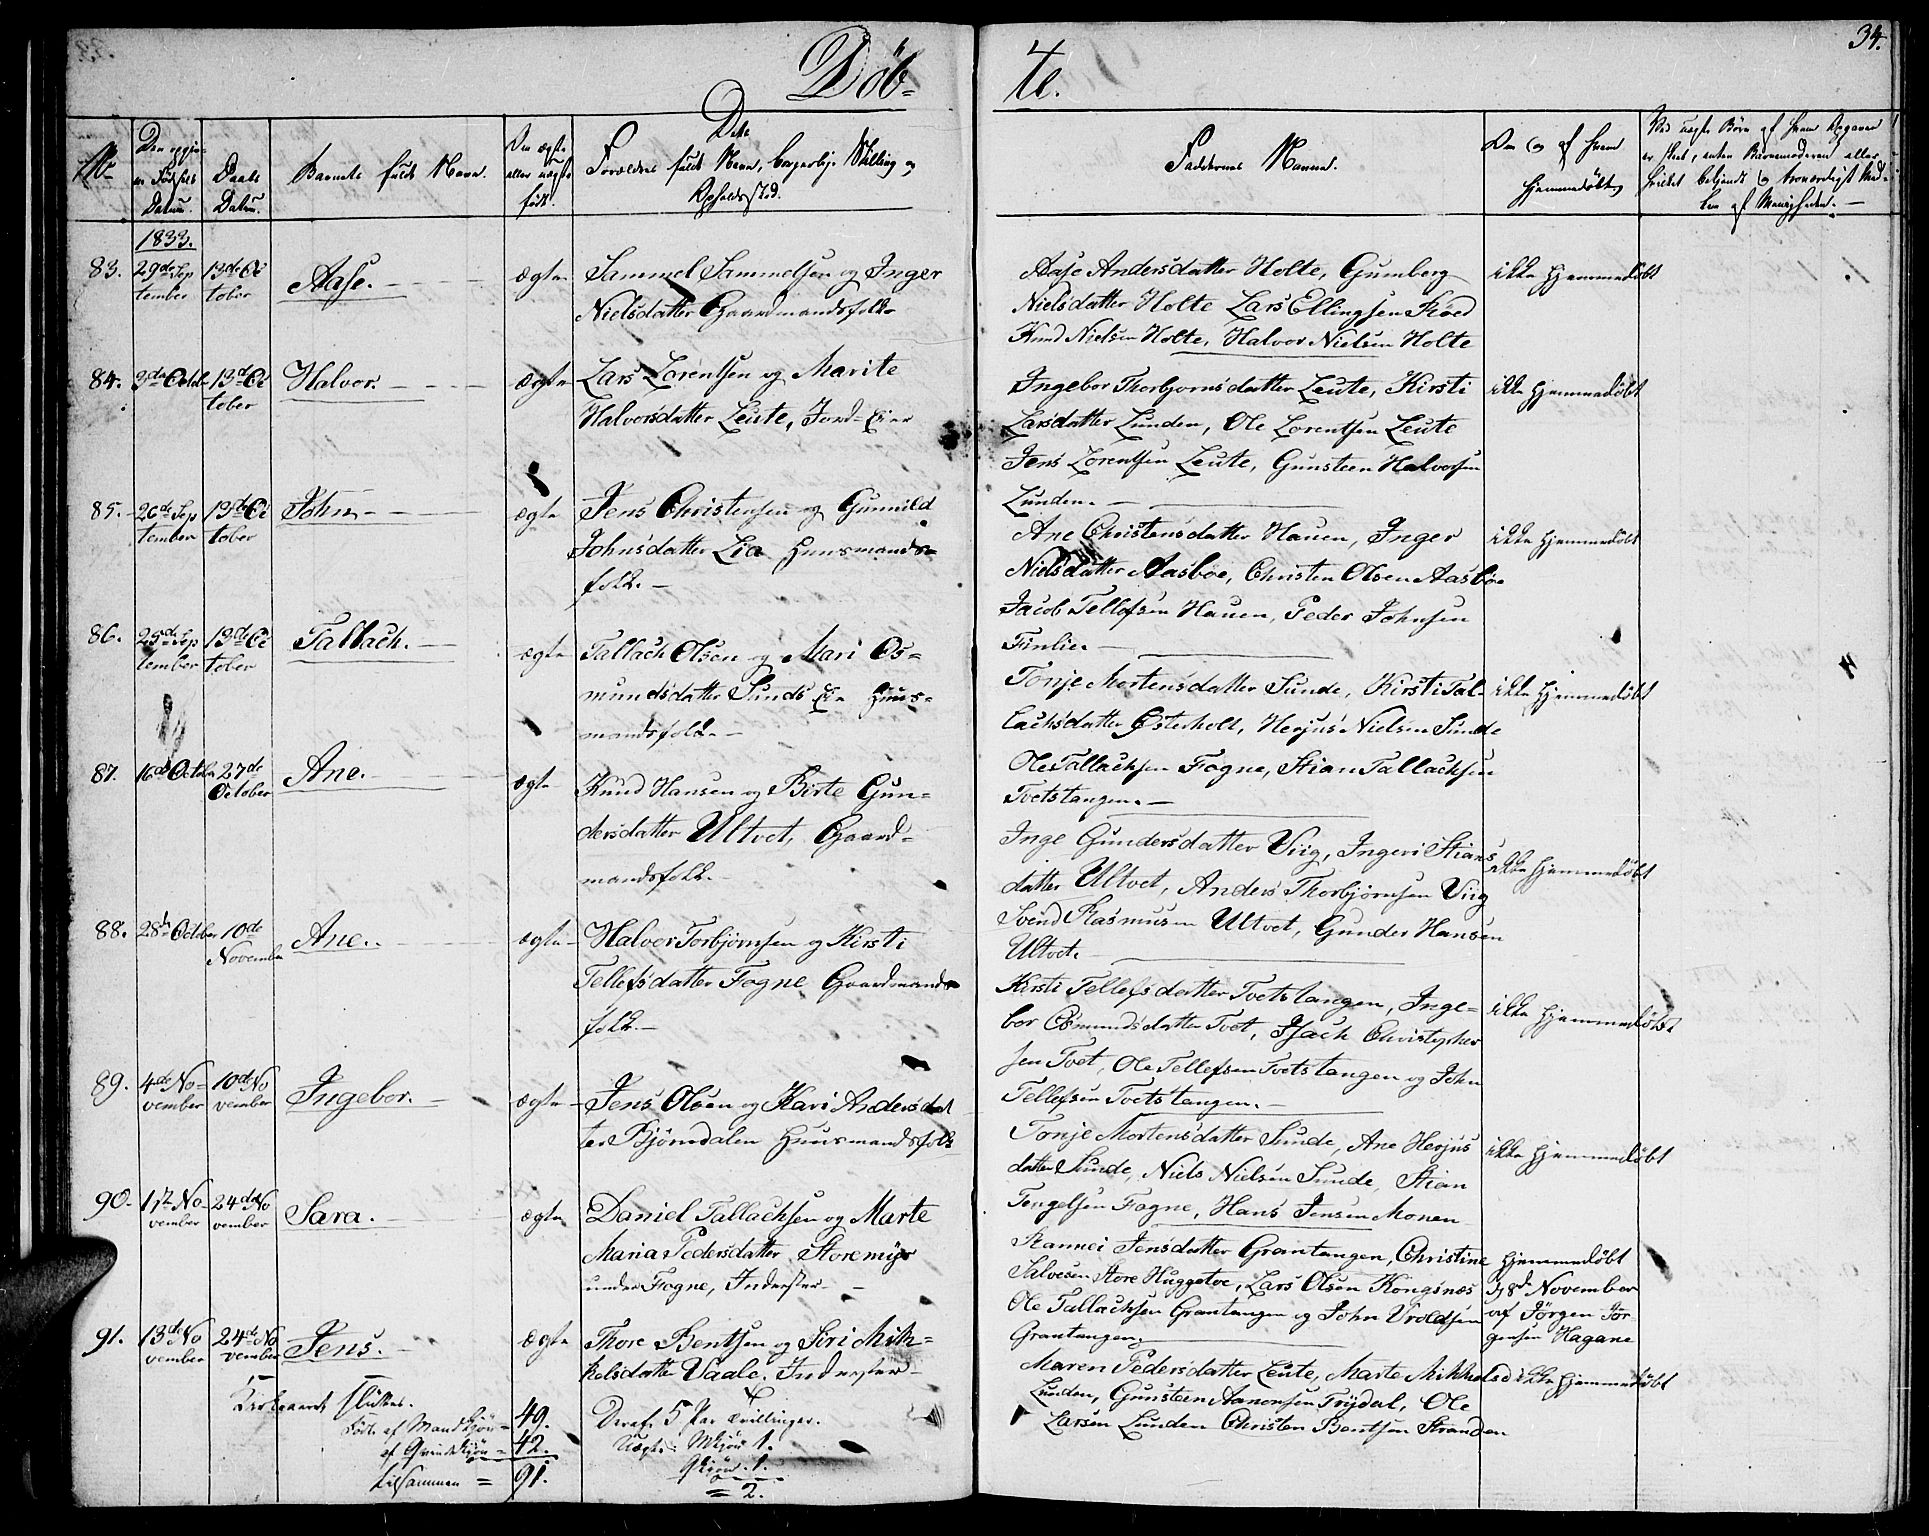 Döb-
te.
34.
No
Den opgivne Födsels Datum.
Daabs Datum.
Barnets fulde Navn.
Om ægte eller uægte født.
Dets
Forældres fulde Navn, borgerlige Stilling og
Opholdssted.
Faddernes Navne.
Om og af hvem
hjemmedöbt
Ved uægte Börn af hvem Opgaven
er skeet, enten Barnemoderen eller
hvilket bekjendt og troværdigt Med-
lem af Menigheden.
1833.
83. 29de Sep
tember
13de Oc
tober
Aase.
ægte
Sammel Sammelsen og Inger
Nielsdatter Gaardmandsfolk
Aase Andersdatter Holte, Gumberg
Nielsdatter Holte Lars Ellingsen Röed
Knud Nielsen Holte, Halvor Nielsen Holte
ikke hjemmedöbt
84. 3de Octob 13de Oc
tober
Halvor.
ægte
Lars Lorentsen og Marite
Halvorsdatter Leute, Jord-Eier
Ingebor Thorbjornsdatter Leute, Kirsti
Larsdatter Lunden, Ole Lorentsen Leute
Jens Lorentsen Leute, Gunsteen Halvorsen
Lunden.
ikke hjemmedöbt
85. 26de Sep
tember
13de Oc
tober
John
ægte
Jens Christensen og Gunnild
Johnsdatter Lia Huusmands-
folk.
Ane Christensdatter Hauen, Inger
Nielsdatter Aasböe, Christen Olsen Aasböe
Jacob Tellefsen Hauen, Peder Johnsen
Finlie.
ikke hjemmedöbt
86. 25de Sep
tember
13de Oc
tober
Tallach.
ægte
Tallach Olsen og Mari Os-
mundsdatter Sunds Eie Huus-
mandsfolk.
Tonje Mortensdatter Sunde, Kirsti Tal-
lachsdatter Österholt, Herjus Nielsen Sunde
Ole Tallachsen Fogne, Stian Tallachsen
Tvetstangen.
ikke hjemmedöbt
87. 16de Octob 27de
October
Ane.
ægte
Knud Hansen og Birte Gun-
dersdatter Ultvet, Gaard-
mandsfolk.
Inge Gundersdatter Viig, Ingeri Stians
datter Ultvet, Anders Thorbjörnsen Viig
Svend Rasmusen Ultvet, Gunder Hansen
Ultvet.
ikke hjemmedöbt
88. 28de October 10de
November
Ane.
ægte
Halvor Torbjörnsen og Kirsti
Tellefsdatter Fogne Gaardmands
folk.
Kirsti Tellefsdatter Tvetstangen, Inge-
bor Osmundsdatter Tvet, Isach Christopher
sen Tvet, Ole Tellefsen Tvetstangen og John
Tellefsen Tvetstangen.
ikke hjemmedöbt
89. 4de No-
vember
10de No
vember
Ingebor.
ægte
Jens Olsen og Kari Andersdat
ter Björndalen Huusmandsfolk
Tonje Mortensdatter Sunde, Ane Herjus
datter Sunde, Niels Nielsen Sunde, Stian
Tengelsen Fogne, Hans Jensen Monen
ikke hjemmedöbt
90. 17de No
vember
24de No
vember
Sara.
ægte
Daniel Tallachsen og Marte
Maria Pedersdatter Storemÿr
under Fogne, Inderster
Rannei Jensdatter Grantangen, Christine
Salvesen Store Huggetoe, Lars Olsen Kongsnæs
Ole Tallachsen Grantangen og John Vroldsen
Grantangen.
hjemmedöbt
18de November
af Jörgen Jör
gensen Hagane
91. 13de No
vember
24de No
vember
Jens.
ægte
Thore Bentsen og Siri Mik-
kelsdatter Vaale. Inderster
Maren Pedersdatter Leute, Marte Mikkelsd
Lunden, Gunsteen Aanonsen Trÿdal, Ole
Larsen Lunden Christen Bentsen Stranden
ikke hjemmedöbt
Kirkeaaret sluttes.
Födte af Mandkjön 49.
af Qvindekjön 42.
tilsammen = 91.
Deraf 5 Par Tvillinger.
Uægte: Mkjön 1.
Qkjön. 1.
= 2.